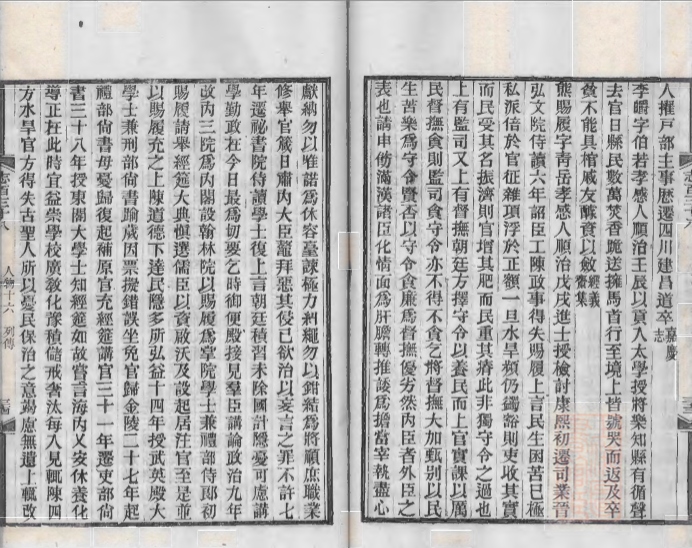 人擢戶部主事歷遷四川建昌道卒嘉慶志
李皭字伯若孝感人順治壬辰以貢入太學授將樂知縣有循聲
去官日縣民數萬焚香跪送擁馬首行至境上皆號哭而返及卒
貧不能具棺戚友醵資以斂經義齋集
熊賜履字青岳孝感人順治戊戌進士授檢討康熙初遷司業晉
弘文院侍讀六年詔臣工陳政事得失賜履上言民生困苦已極
私派倍於官征雜項浮於正額一旦水旱頻仍蠲豁則吏收其實
而民受其名振濟則官增其肥而民重其瘠此非獨守令之過也
上有監司又上有督撫朝廷方擇守令以養民而上官實課以厲
民督撫貪則監司貪守令亦不得不貪乞將督撫大加甄别以民
生苦樂爲守令賢否以守令貪廉爲督撫優劣然內臣者外臣之
表也請申飭滿漢諸臣化情面爲肝膽轉推諉爲擔當宰執盡心
獻納勿以唯諾爲休容臺諫極力糾繩勿以鉗結爲將順庶職業
修舉官箴日肅內大臣鼇拜惡其侵已欲治以妄言之罪不許七
年遷祕書院侍讀學士復上言朝廷積習未除國計隱憂可慮講
學勤政在今日最爲切要乞時御便殿接見羣臣講論政治九年
改丙三院爲內閣設翰林院以賜履爲掌院學士兼禮部侍郎初
賜履請舉經筵大典愼選儒臣以資啟沃及設起居注官至是並
以賜履充之上陳道德下達民隱多所弘益十四年授武英殿大
學士兼刑部尙書踰歲因票擬錯誤坐免官歸金陵二十七年起
禮部尙書母憂歸復起補原官充經筵講官三十一年遷吏部尙
書三十八年授東閣大學士知經筵如故嘗言海內乂安休養化
導正在此時宜益崇學校廣敎化豫積儲戒奢汰每入見輒陳四
方水旱官方得失古聖人所以憂民保治之意竭慮無遺上輒改
人物十六 列傳